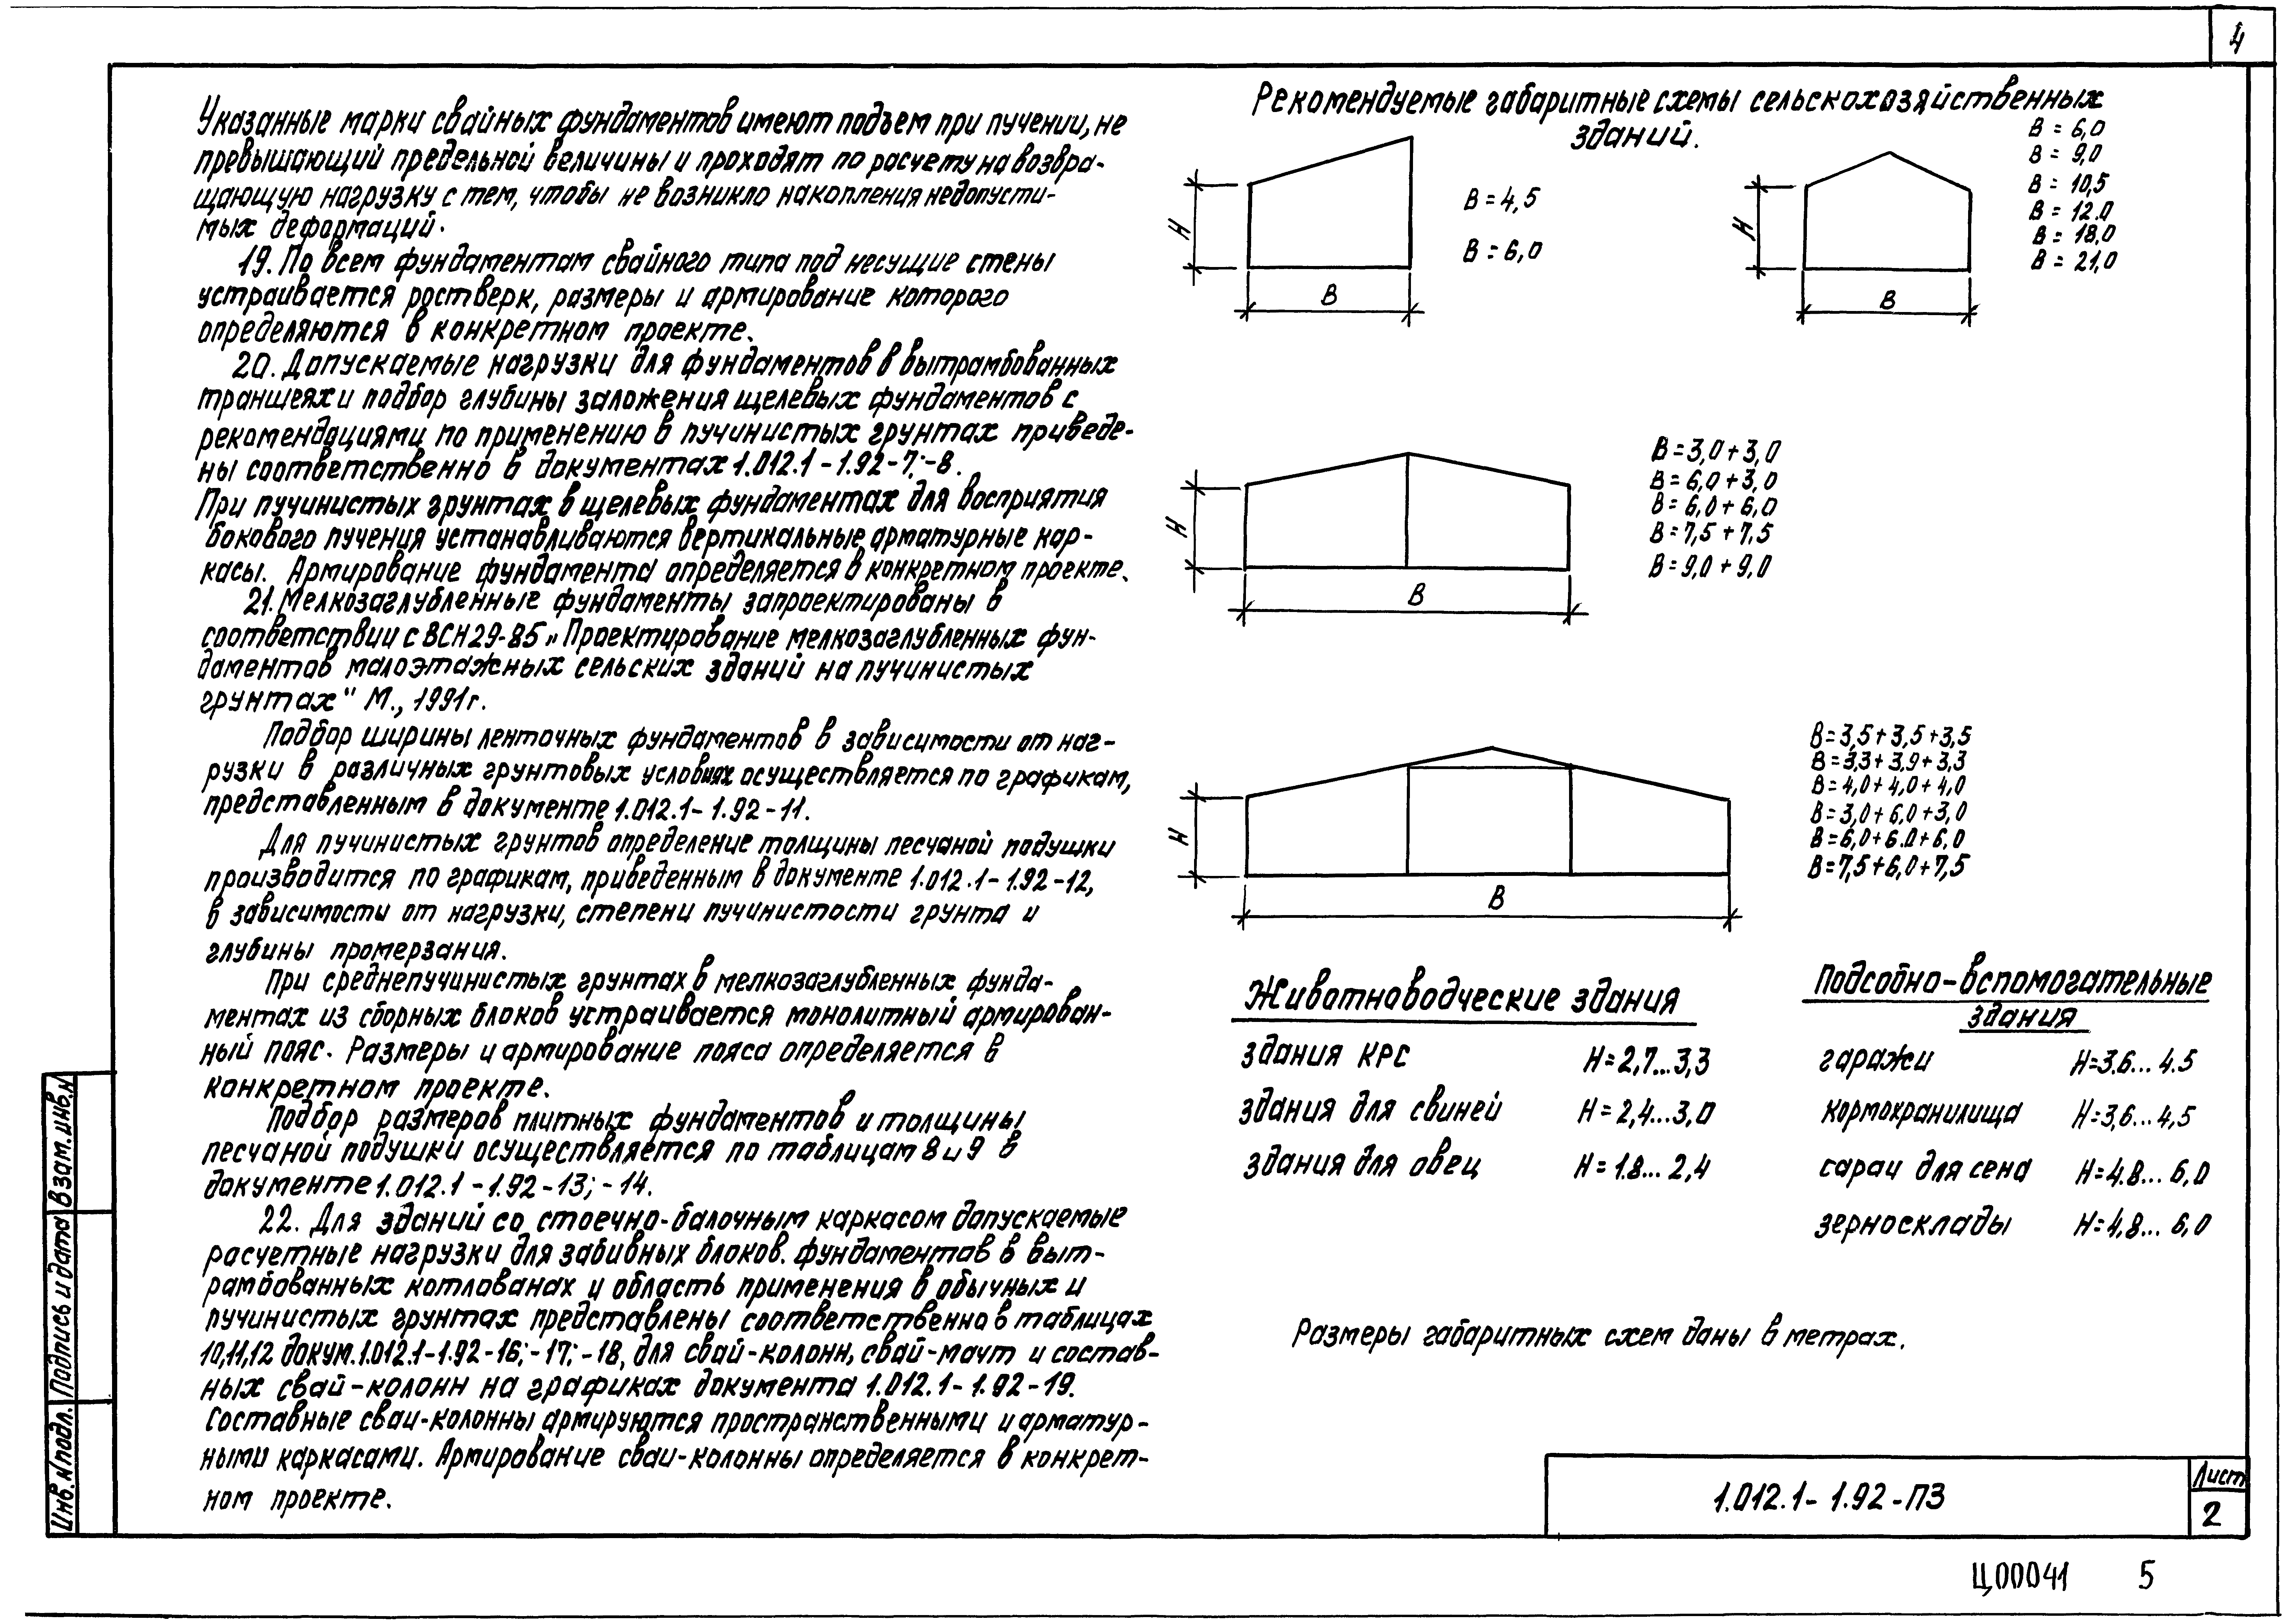 4
Указанные марки свайных фундаментов имеют подъем при пучении, не
превышающий предельной величины и проходят по расчету на возвра-
щающую нагрузку с тем, чтобы не возникло накопления недопусти-
мых деформаций.
19. По всем фундаментам свайного типа под несущие стены
устраивается ростверк, размеры и армирование которого
определяются в конкретном проекте.
20. Допускаемые нагрузки для фундаментов в вытрамбованных
траншеях и подбор глубины заложения щелевых фундаментов с
рекомендациями по применению в пучинистых грунтах приведе-
ны соответственно в документах 1.012.1-1.92-7;-8.
При пучинистых грунтах в щелевых фундаментах для восприятия
бокового пучения устанавливаются вертикальные арматурные кар-
касы. Армирование фундамента определяется в конкретном проекте.
21. Мелкозаглубленные фундаменты запроектированы в
соответствии с ВСН 29-85 „Проектирование мелкозаглубленных фун-
даментов малоэтажных сельских зданий на пучинистых
грунтах" М., 1991г.
Подбор ширины ленточных фундаментов в зависимости от наг-
рузки в различных грунтовых условиях осуществляется по графикам,
представленным в документе 1.012.1-1.92-11.
Для пучинистых грунтов определение толщины песчаной подушки
производится по графикам, приведенным в документе 1.012.1-1.92-12,
в зависимости от нагрузки, степени пучинистости грунта и
глубины промерзания.
При среднепучинистых грунтах в мелкозаглубленных фунда-
ментах из сборных блоков устраивается монолитный армирован-
ный пояс. Размеры и армирование пояса определяется в
конкретном проекте.
Подбор размеров плитных фундаментов и толщины
песчаной подушки осуществляется по таблицам 8 и 9 в
документе 1.012.1-1.92-13;-14.
22. Для зданий со стоечно-балочным каркасом допускаемые
расчетные нагрузки для забивных блоков. фундаментов в выт-
рамбованных котлованах и область применения в обычных и
пучинистых грунтах представлены соответственно в таблицах
10,11,12 докум. 1.012.1-1.92-16;-17;-18, для свай-колонн, свай-мачт и состав-
ных свай-колонн на графиках документа 1.012.1-1.92-19.
Составные сваи-колонны армируются пространственными и арматур-
ными каркасами. Армирование сваи-колонны определяется в конкрет-
ном проекте.
Рекомендуемые габаритные схемы сельскохозяйственных
зданий.
H
B
B = 4,5
B = 6,0
H
B
B = 6,0
B = 9,0
B = 10,5
B = 12.0
B = 18,0
B = 21,0
H
B
B = 3,0 + 3,0
B = 6,0 + 3,0
B = 6,0 + 6,0
B = 7,5 + 7,5
B = 9,0 + 9,0
H
B
B = 3,5 + 3,5 + 3,5
B = 3,3 + 3,9 + 3,3
B = 4,0 + 4,0 + 4,0
B = 3,0 + 6,0 + 3,0
B = 6,0 + 6.0 + 6,0
B = 7,5 + 6,0 + 7,5
Животноводческие здания
здания КРС H = 2,7...3,3
здания для свиней H = 2,4...3,0
здания для овец H = 1.8...2,4
Подсобно-вспомогательные
здания
гаражи H = 3.6...4.5
кормохранилища H = 3,6...4,5
сараи для сена H = 4.8...6,0
зерносклады H = 4,8...6,0
Размеры габаритных схем даны в метрах.
Взам. инв. N
Подпись и дата
Инв. N подл.
1.012.1-1.92-ПЗ
Лист
2
Ц00041 5